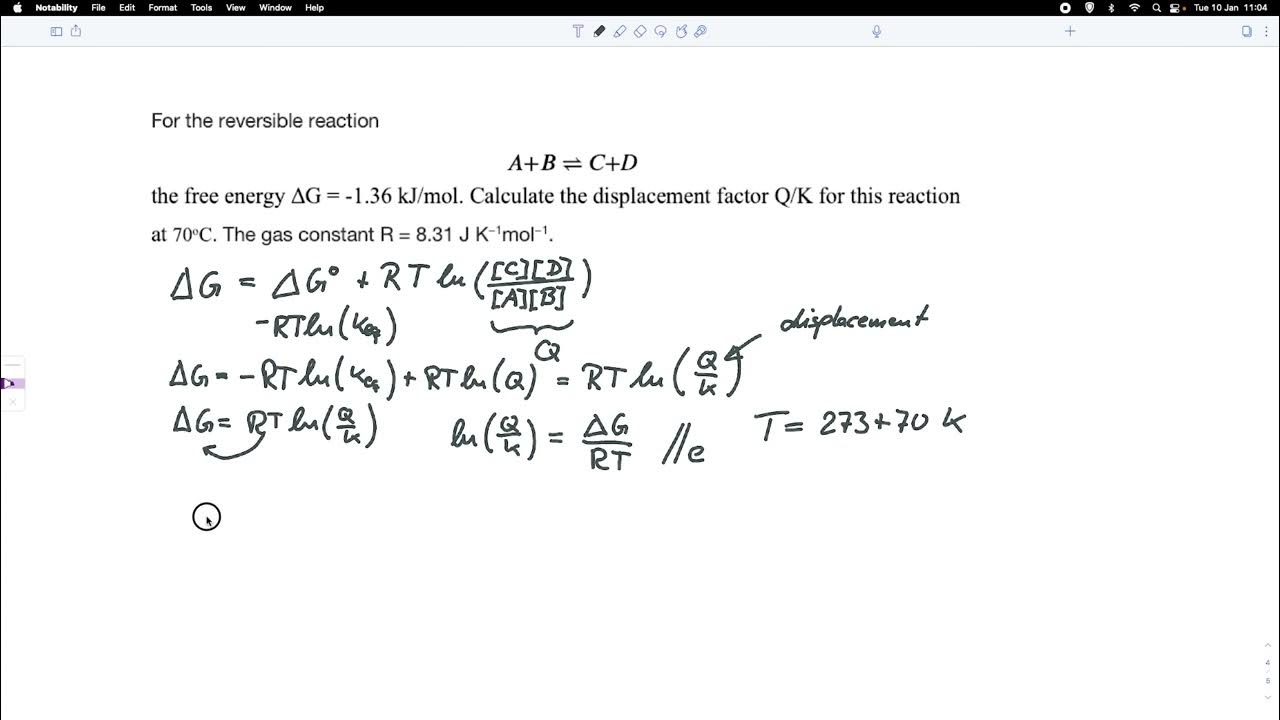 Notability File Edit Format Tools View Window Help Tue 10 Jan 11:04
For the reversible reaction
A+B ⇌ C+D
the free energy ΔG = -1.36 kJ/mol. Calculate the displacement factor Q/K for this reaction
at 70ºC. The gas constant R = 8.31 J K⁻¹mol⁻¹.
ΔG = ΔG° + RT ln([C][D]/[A][B])
-RTln(Keq)
Q
displacement
ΔG = -RT ln(Keq) + RT ln(Q) = RT ln(Q/K)
ΔG = RT ln(Q/K) ln(Q/K) = ΔG/RT //e T = 273+70 K
4
6